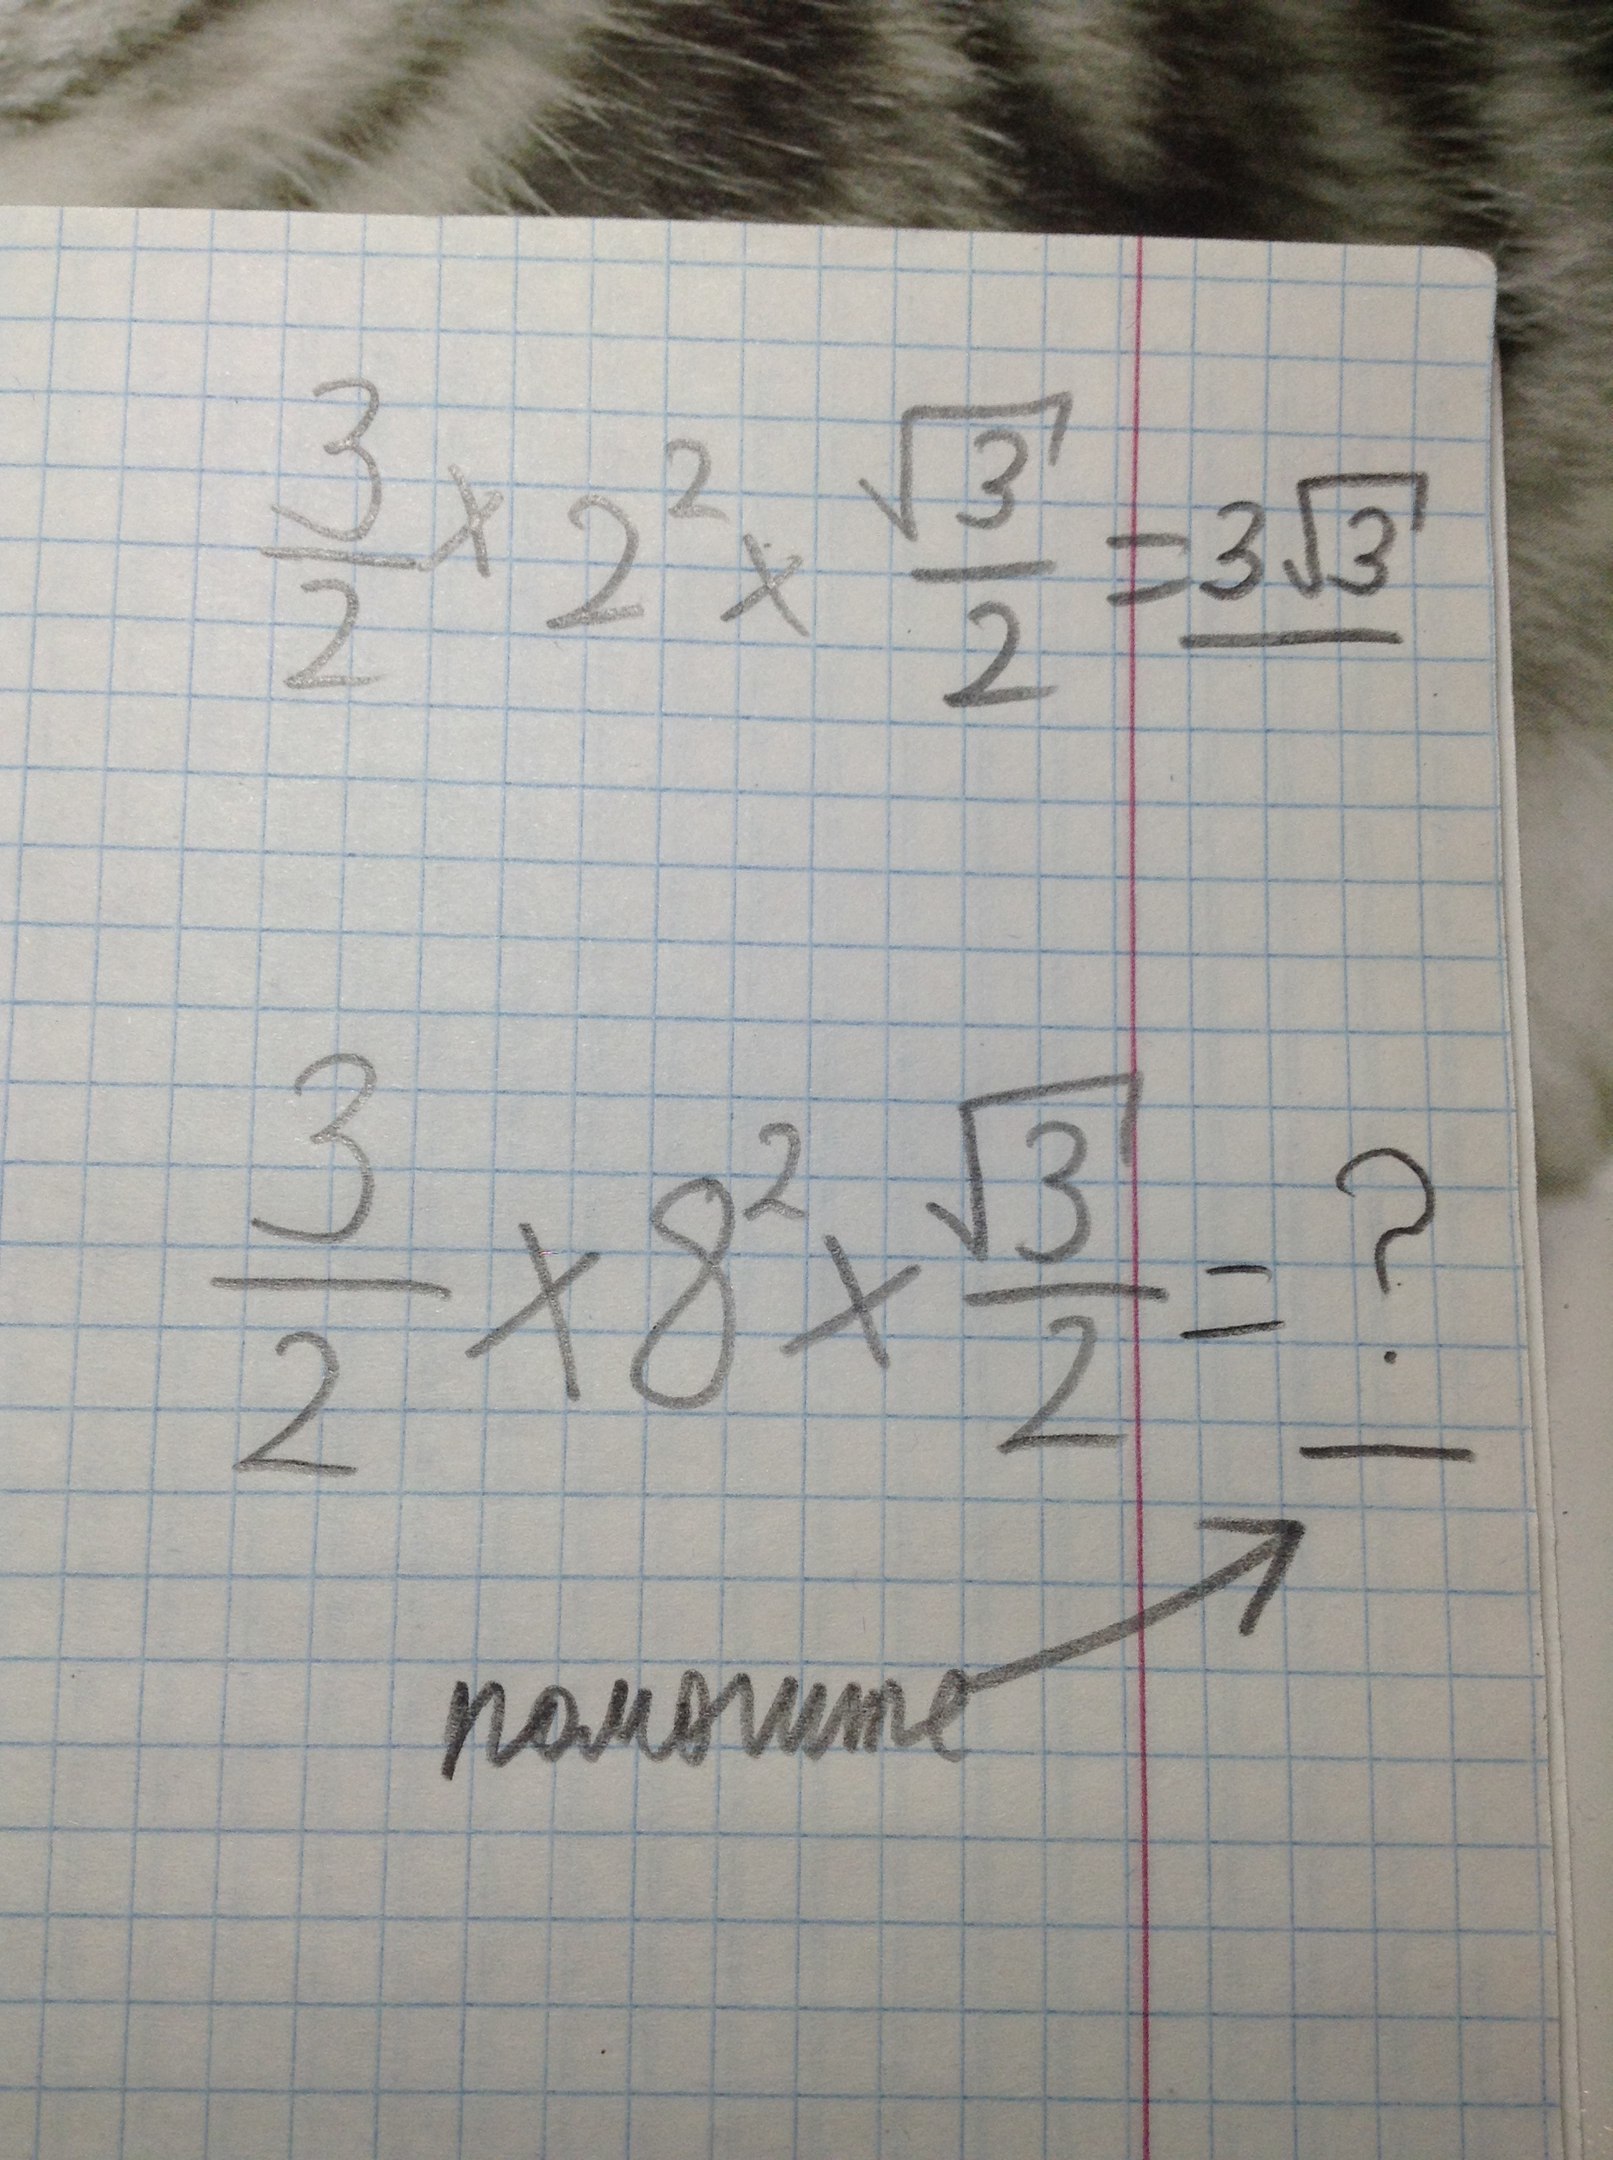 3/2 x 2² x √3/2 = 3√3
3/2 x 8² x √3/2 = ?
помогите